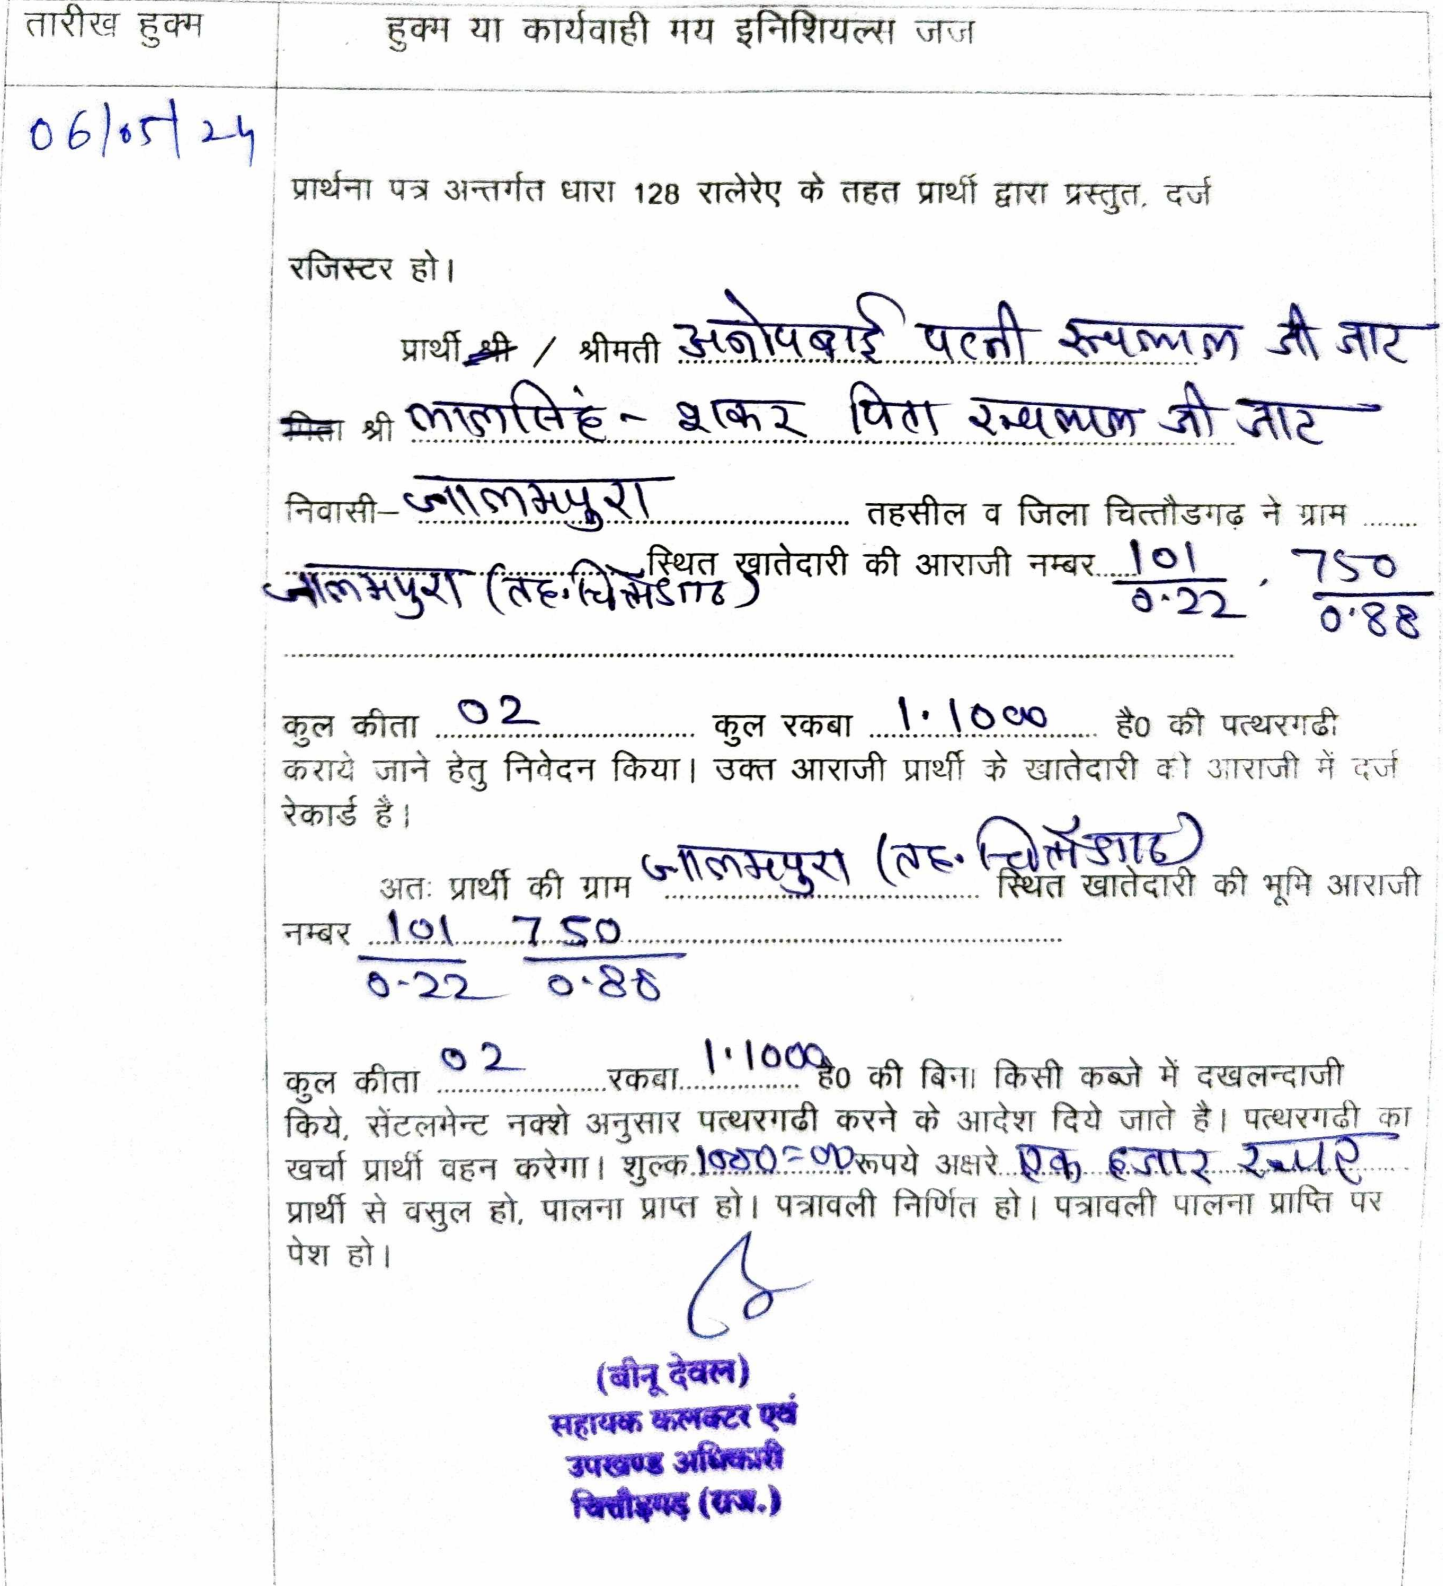 तारीख हुक्म
हुक्म या कार्यवाही मय इनिशियल्स जज
06/05/24
प्रार्थना पत्र अन्तर्गत धारा 128 रालेरेए के तहत प्रार्थी द्वारा प्रस्तुत, दर्ज
रजिस्टर हो।
प्रार्थी श्री / श्रीमती अनोपबाई पत्नी जी जाट
पिता श्री लालसिंह - शंकर पिता जी जाट
निवासी– जालमपुरा तहसील व जिला चित्तौडगढ़ ने ग्राम
जालमपुरा (तह. चित्तौड़गढ) स्थित खातेदारी की आराजी नम्बर 101/0.22, 750/0.88
कुल कीता 02 कुल रकबा 1.1000 है0 की पत्थरगढी
कराये जाने हेतु निवेदन किया। उक्त आराजी प्रार्थी के खातेदारी की आराजी में दर्ज
रेकार्ड है।
अतः प्रार्थी की ग्राम जालमपुरा (तह. चित्तौड़गढ) स्थित खातेदारी की भूमि आराजी
नम्बर 101/0.22 750/0.88
कुल कीता 02 रकबा 1.1000 है0 की बिना किसी कब्जे में दखलन्दाजी
किये, सेंटलमेन्ट नक्शे अनुसार पत्थरगढी करने के आदेश दिये जाते है। पत्थरगढी का
खर्चा प्रार्थी वहन करेगा। शुल्क 1000=00 रूपये अक्षरे एक हजार रूपए
प्रार्थी से वसुल हो, पालना प्राप्त हो। पत्रावली निर्णित हो। पत्रावली पालना प्राप्ति पर
पेश हो।
(बीनू देवल)
सहायक कलक्टर एवं
उपखण्ड अधिकारी
चित्तौड़गढ़ (राज.)